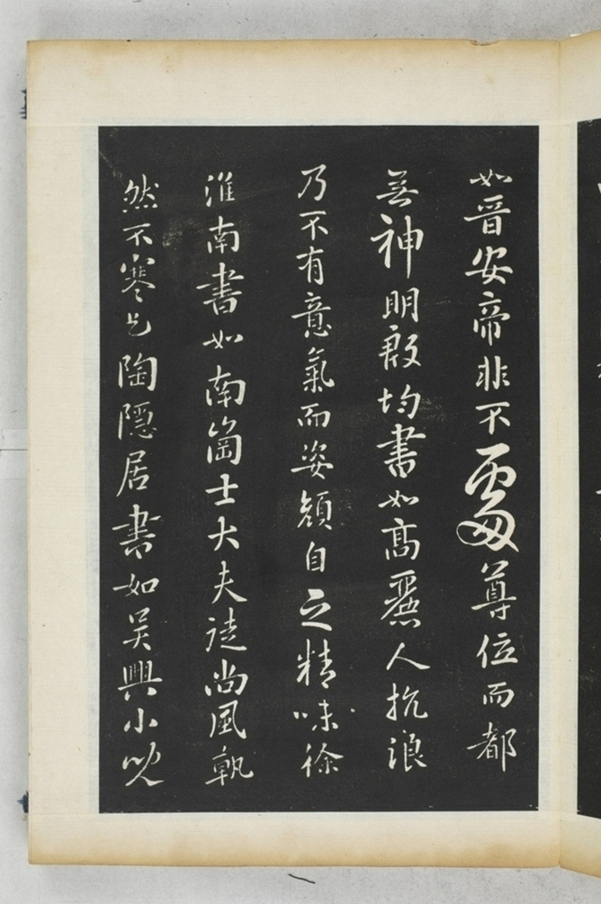 如晉安帝非不處尊位而都
無神明殷均書如高麗人抗浪
乃不有意氣而姿顏自乏精味徐
淮南書如南崗士大夫徒尚風軌
然不寒乞陶隱居書如吳興小兒